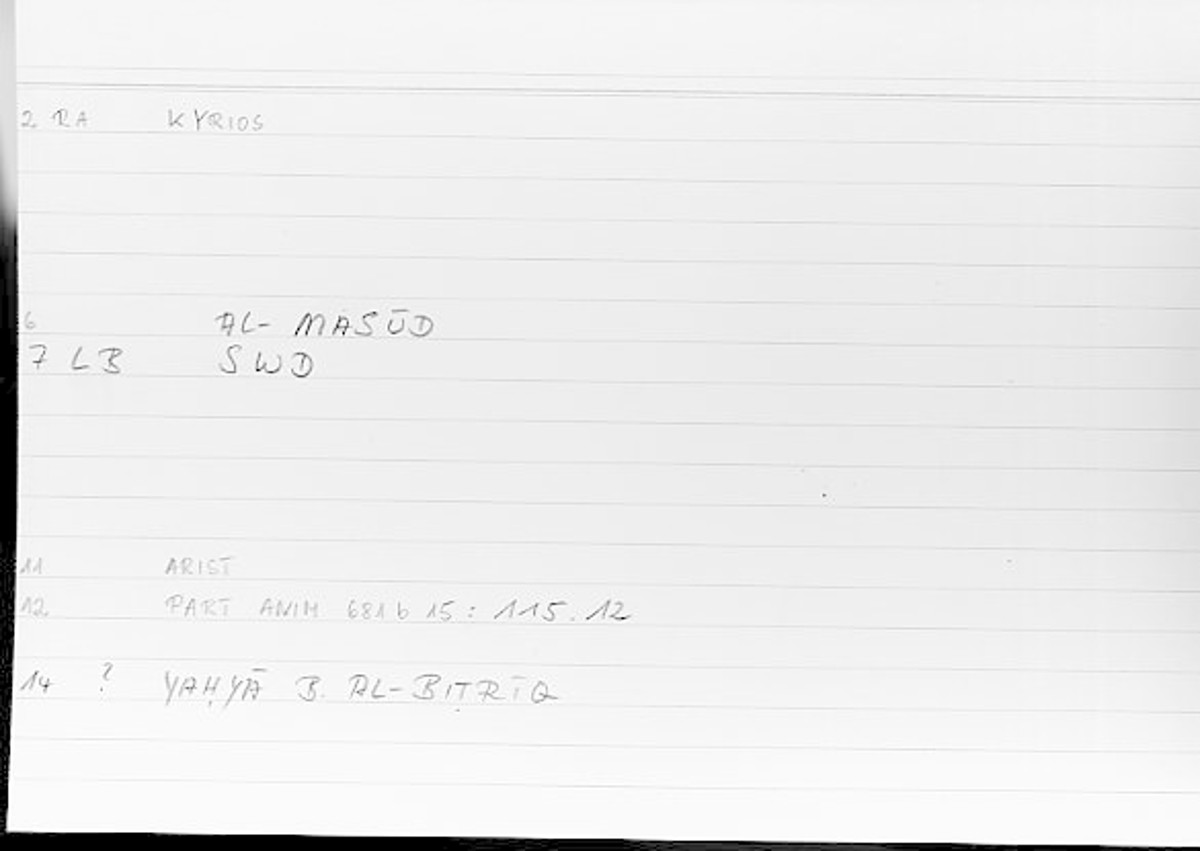 2 RA KYRIOS
6 AL- MASŪD
7 LB SWD
11 ARIST
12 PART ANIM 681b 15: 115.12
14 ? YAḤYĀ B. AL-BIṬRĪQ